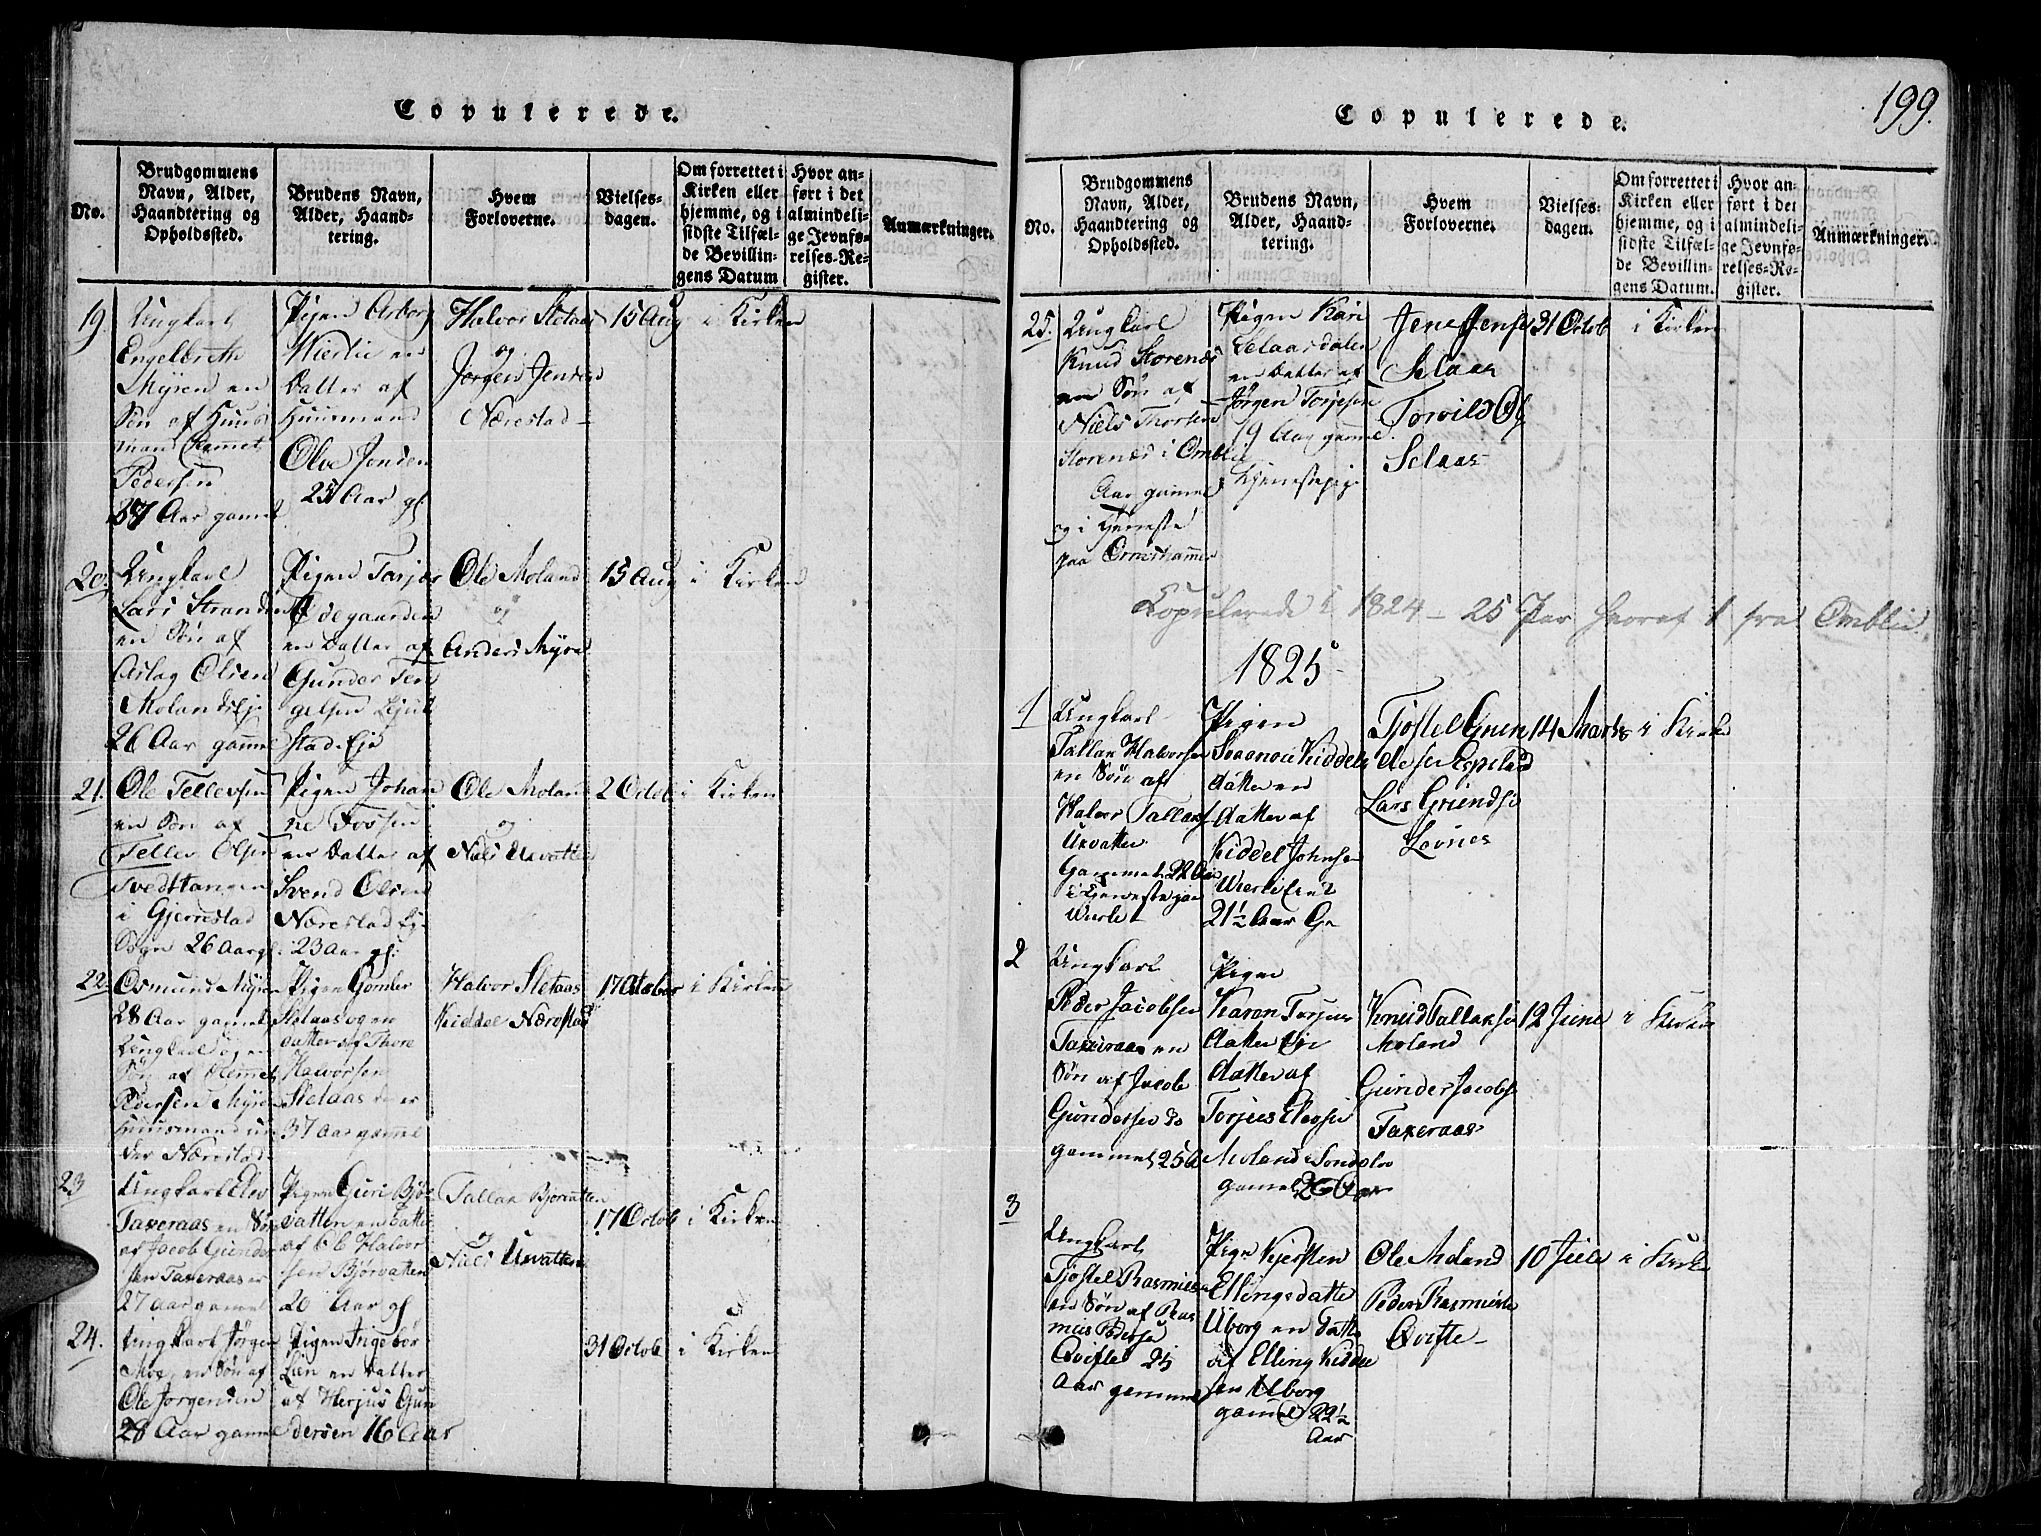 Copulerede.
No.
Brudgommens
Navn, Alder,
Haandtering og
Opholdssted.
Brudens Navn,
Alder, Haand-
tering.
Hvem
Forloverne.
Vielses-
dagen.
Om forrettet i
Kirken eller
hjemme, og i
sidste Tilfæl-
de Bevillin-
gens Datum
Hvor an-
ført i det
almindeli-
ge Jevnfø-
relses-Re-
gister.
Anmærkninger.
19
Ungkarl
Engelbreth
Myren en
Søn af Huus
mand
Pedersen
37 Aar gamel
Pigen Asbor
Wierlie en
Datter af
Huusmand
Olve Jonsen
25 Aar gl
Halvor Sletaas
og
Jørgen Jensen
Nærestad
15 Aug
i Kirken
20
Ungkarl
Lars Stranden
en Søn af
Aslag Olsen
Molands Eje
26 Aar gamel
Pigen Torjer
Ødegaarden
en Datter af
Gunder Ter
gelsen
stad. Eje
Ole Moland
og
Anders Myre
15 Aug
i Kirken
21.
Ole Tellevsen
en Søn af
Tellev Olsen
Tvedttangen
i Gjerrestad
Sogn 26 Aar gl.
Pigen Johan
ne Fossen
en Datter af
Svend Olsen
Nærestad Ej
23 Aar gl:
Ole Moland
og
Niels Urvatten
2 Octob
i Kirken
22
Osmund Myren
28 Aar gamel
Ungkarl og en
Søn af
Pedersen Myren
Huusmand un
der Nærestad
Pigen Gomler
Sletaas og en
datter af Thore
Halvorsen
Sletaas der er
37 Aar gammel
Halvor Sletaas
Kiddel Nærestad
17 October
i Kirken
23
Ungkarl Elev
Taxeraas en Søn
af Jacob Gunder
sen Taxeraas er
27 aar gamel
Pigen Guri Bjør
vatten en Datter
af Ole Halvor
sen Bjørvatten
20 Aar gl
Tallak Bjørvatten
og
Niels Urvatten
17 Octob
i Kirken
24.
Ungkarl Jørgen
Moe, en Søn af
Ole Jorgensen
28 Aar gamel
Pigen Ingebor
Lien en Datter
af Herjus Gun
dersen 16 Aar
31 Octob
i Kirken
199.
Copulerede.
No.
Brudgommens
Navn, Alder,
Haandtering og
Opholdssted.
Brudens Navn,
Alder, Haand-
tering.
Hvem
Forloverne.
Vielses-
dagen.
Om forrettet i
Kirken eller
hjemme, og i
sidste Tilfæl-
de Bevillin-
gens Datum.
Hvor an-
ført i det
almindeli-
ge Jevnfø-
relses-Re-
gister.
Anmærkninger.
25.
Ungkarl
Knud Storenæs
en Søn af
Niels Thorsen
Storenæs i Omblie
Aar gamel
og i Tjeneste
paa
Pigen Kari
Selaasdalen
en Datter af
Jørgen Torjesen
19 Aar gamel
Tjenestepige
Jens Jense
Selaas
Torvild Ols
Selaas
31 Octob
i Kirken
Copulerede i 1824 – 25 Par hvoraf 1 fra Omblie
1825
1
Ungkarl
Tallak Halvorsen
en Søn af
Halvor Tallaks
Urvatten
Gammel 22 Aar
i Tjeneste paa
Pigen
Kiddels
datter en
datter af
Kiddel Johnsen
21½ Aar G
Tjøstel Gun
dersen Espestad
Lars
Lovnes
14 Marts
i Kirke
2
Ungkarl
Peder Jacobsen
Taxeraas en
Søn af Jacob
Gundersen
gammel 25 A
Pigen
Karen Torjus
datter en
datter af
Torjus
Moland i Sondelev
gamel 26 Aar
Knud Tallaksen
Moland
Gunder Jacobs
Taxeraas
12 June
i Kirken
3
Ungkarl
Tjøstel Rasmusen
en Søn af Ras
mus Pedersen
Qvifte 25
Aar gammel
Pigen Kjersten
Ellingsdatte
Uborg en datte
af Elling Kiddel
sen Uborg
gamel 22½
Aar
Ole Moland
Peder Rasmusen
Qvifte
10 Jule
i Kirke